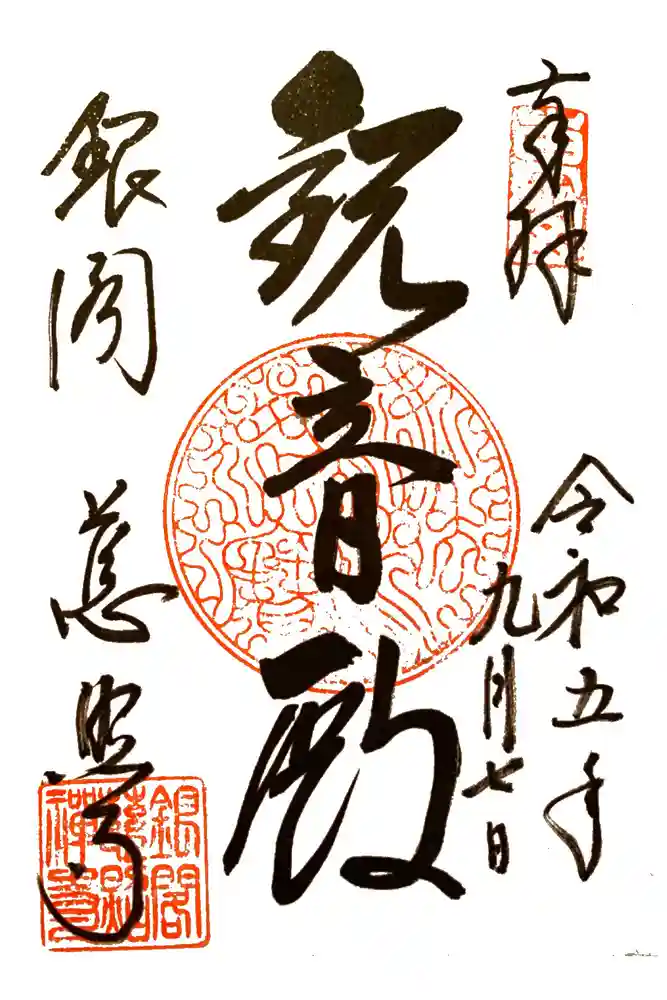 奉拝
令和五年
九月七日
観音殿
銀閣
慈照寺
銀閣
慈照
禅寺